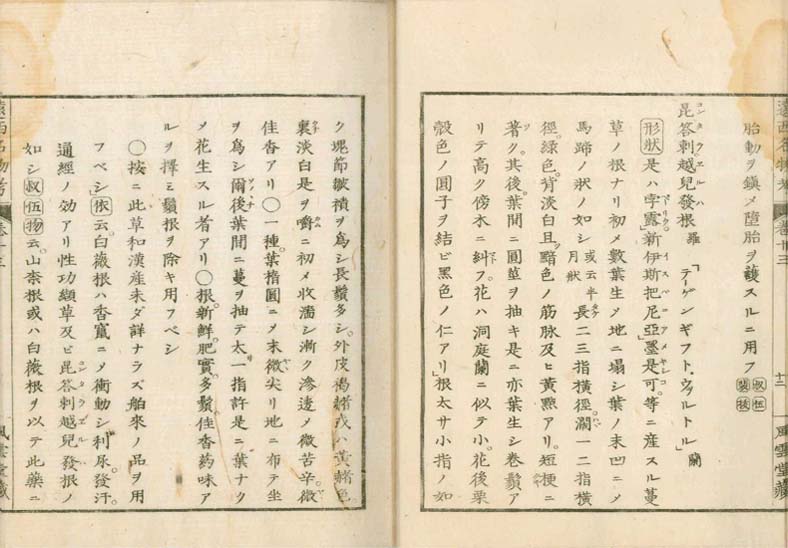 胎動ヲ鎮メ堕胎ヲ護スルニ用フ
昆答剌越兒發根 羅 「テーゲンギフト、ウヲルトル」 蘭
形状 是ハ孛露新伊斯把尼亞墨是可等ニ産スル蔓
草ノ根ナリ初メ數葉生メ地ニ塌シ葉ノ末凹ニメ
馬蹄ノ状ノ如シ 或云半月状 長二三指横徑濶一二指横
徑。綠色。背淡白且ツ黯色ノ筋脉及ヒ黃㸃アリ。短梗ニ
著ク。其後。葉間ニ圓莖ヲ抽キ是ニ亦葉生シ卷鬚ア
リテ高ク傍木ニ糾フ。花ハ洞庭蘭ニ似テ小。花後栗
殼色ノ圓子ヲ結ビ黑色ノ仁アリ」根太サ小指ノ如
遠西名物考 卷廿三 十二 風雲堂藏
ク塊節皺襀ヲ爲シ長鬚多シ。外皮褐赭或ハ黃赭色
裏淡白是ヲ嚼ニ初メ收濇シ漸ク滲透メ微苦辛。微
佳香アリ〇一種。葉橢圓ニメ末微尖リ地ニ布テ坐
ヲ爲シ爾後葉間ニ蔓ヲ抽テ太一指許是ニ葉ナク
メ花生スル者アリ〇根。新鮮。肥實。多鬚。佳香药味ア
ルヲ擇ミ鬚根ヲ除キ用フベシ
〇按ニ此草和漢産未ダ詳ナラズ舶來ノ品ヲ用
フベシ 依 云。白薇根ハ香竄ニメ衝動シ利尿。發汗。
通經ノ効アリ性功纈草及ビ昆答剌越兒發根ノ
如シ 叔 伍 物 云。山柰根或ハ白薇根ヲ以テ此藥ニ
遠西名物考 卷廿三 風雲堂藏